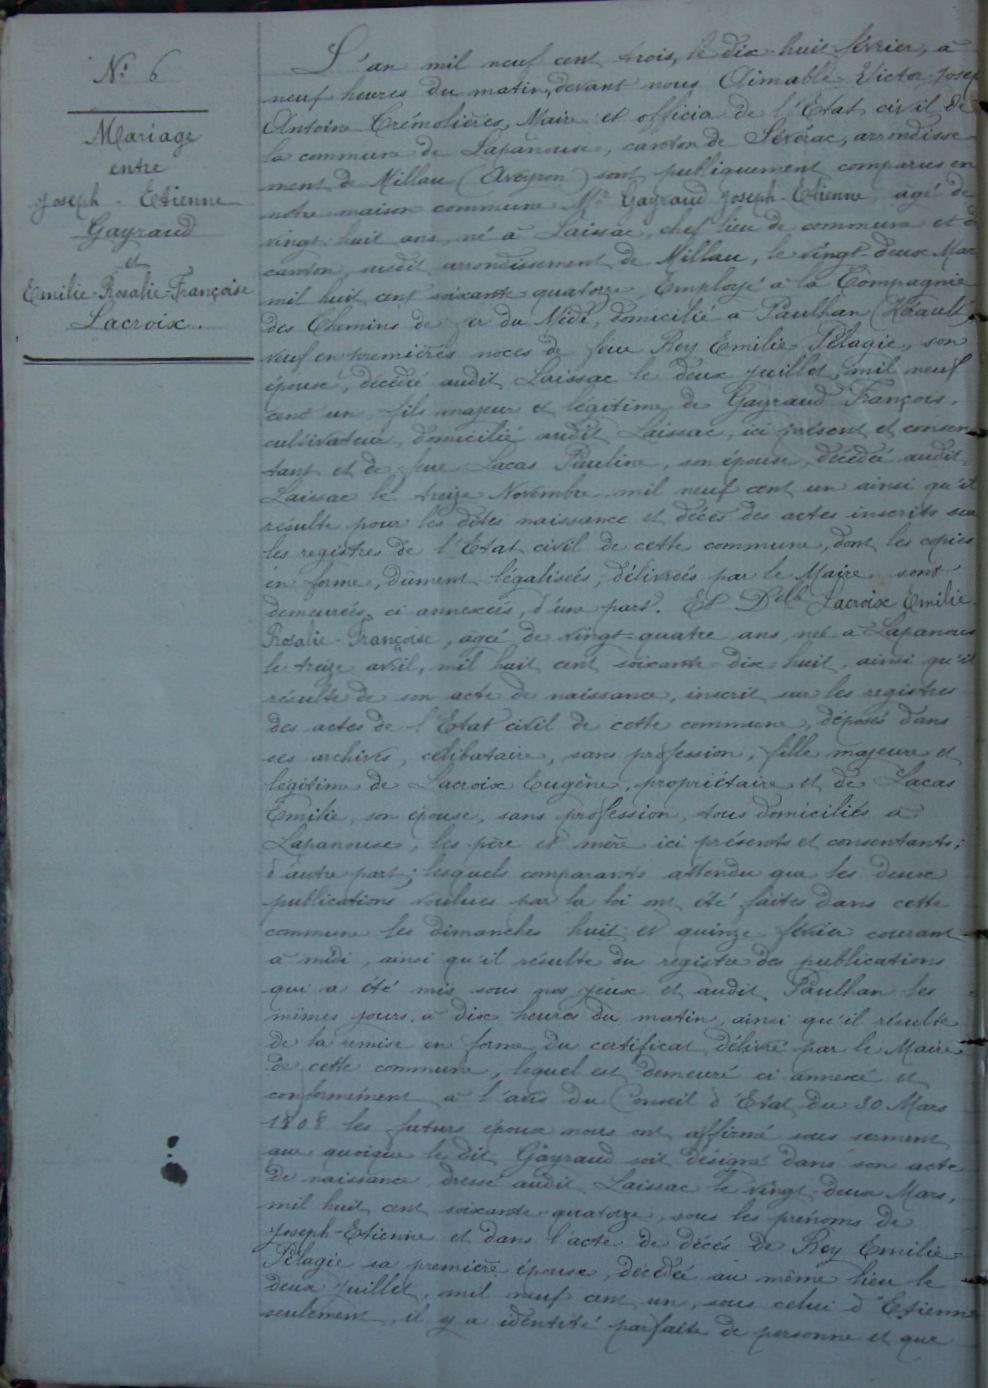 N° 6
Mariage
entre
Joseph-Etienne
Gayraud
et
Emilie-Rosalie-Françoise
Lacroix.
L'an mil neuf cent trois, le dix-huit février, à
neuf heures du matin, devant nous Aimable Victor-Josep
Antoine Crémolières, Maire et officier de l'Etat civil de
la commune de Lapanouse, canton de Sévérac, arrondisse
ment de Millau (Aveyron) sont publiquement comparus en
notre maison commune Mr Gayraud Joseph-Etienne, agé de
vingt-huit ans, né à Laissac, chef lieu de commune et de
canton, susdit arrondissement de Millau, le vingt-deux Mar
mil huit cent soixante quatorze, Employé à la Compagnie
des Chemins de fer du Midi, domicilié à Paulhan (Hérault)
veuf en premières noces de feue Rey Emilie Pélagie, son
épouse, décédée audit Laissac le deux juillet, mil neuf
cent un, fils majeur et légitime de Gayraud François,
cultivateur, domicilié audit Laissac, ici présent et consen
tant et de feue Lacas Pauline, son épouse, décédée audit
Laissac le treize Novembre mil neuf cent un ainsi qu'il
résulte pour les dites naissance et décès des actes inscrits sur
les registres de l'Etat civil de cette commune, dont les copies
en forme, dûment légalisées, délivrées par le Maire sont
demeurées ci annexées, d'une part. Et Delle Lacroix Emilie-
Rosalie-Françoise, agée de vingt-quatre ans, née à Lapanous
le treize avril, mil huit cent soixante dix huit, ainsi qu'il
résulte de son acte de naissance, inscrit sur les registres
des actes de l'Etat civil de cette commune, déposés dans
ses archives, célibataire, sans profession, fille majeure et
légitime de Lacroix Eugène, propriétaire et de Lacas
Emilie, son épouse, sans profession, tous domiciliés à
Lapanouse, les père et mère ici présents et consentants;
d'autre part; lesquels comparants attendu que les deux
publications voulues par la loi ont été faites dans cette
commune les dimanches huit et quinze février courant
à midi, ainsi qu'il résulte du registre des publications
qui a été mis sous nos yeux et audit Paulhan les
mêmes jours, à dix heures du matin, ainsi qu'il résulte
de la remise en forme du certificat délivré par le Maire
de cette commune, lequel est demeuré ci annexé et
conformément à l'avis du Conseil d'Etat du 30 Mars
1808 les futurs époux nous ont affirmé sous serment
que quoique le dit Gayraud soit désigné dans son acte
de naissance, dressé audit Laissac le vingt-deux Mars,
mil huit cent soixante-quatorze, sous les prénoms de
Joseph-Etienne et dans l'acte de décès de Rey Emilie-
Pélagie sa première épouse, décédée au même lieu le
deux juillet, mil neuf cent un, sous celui d'Etienne
seulement, il y a identité parfaite de personne et que